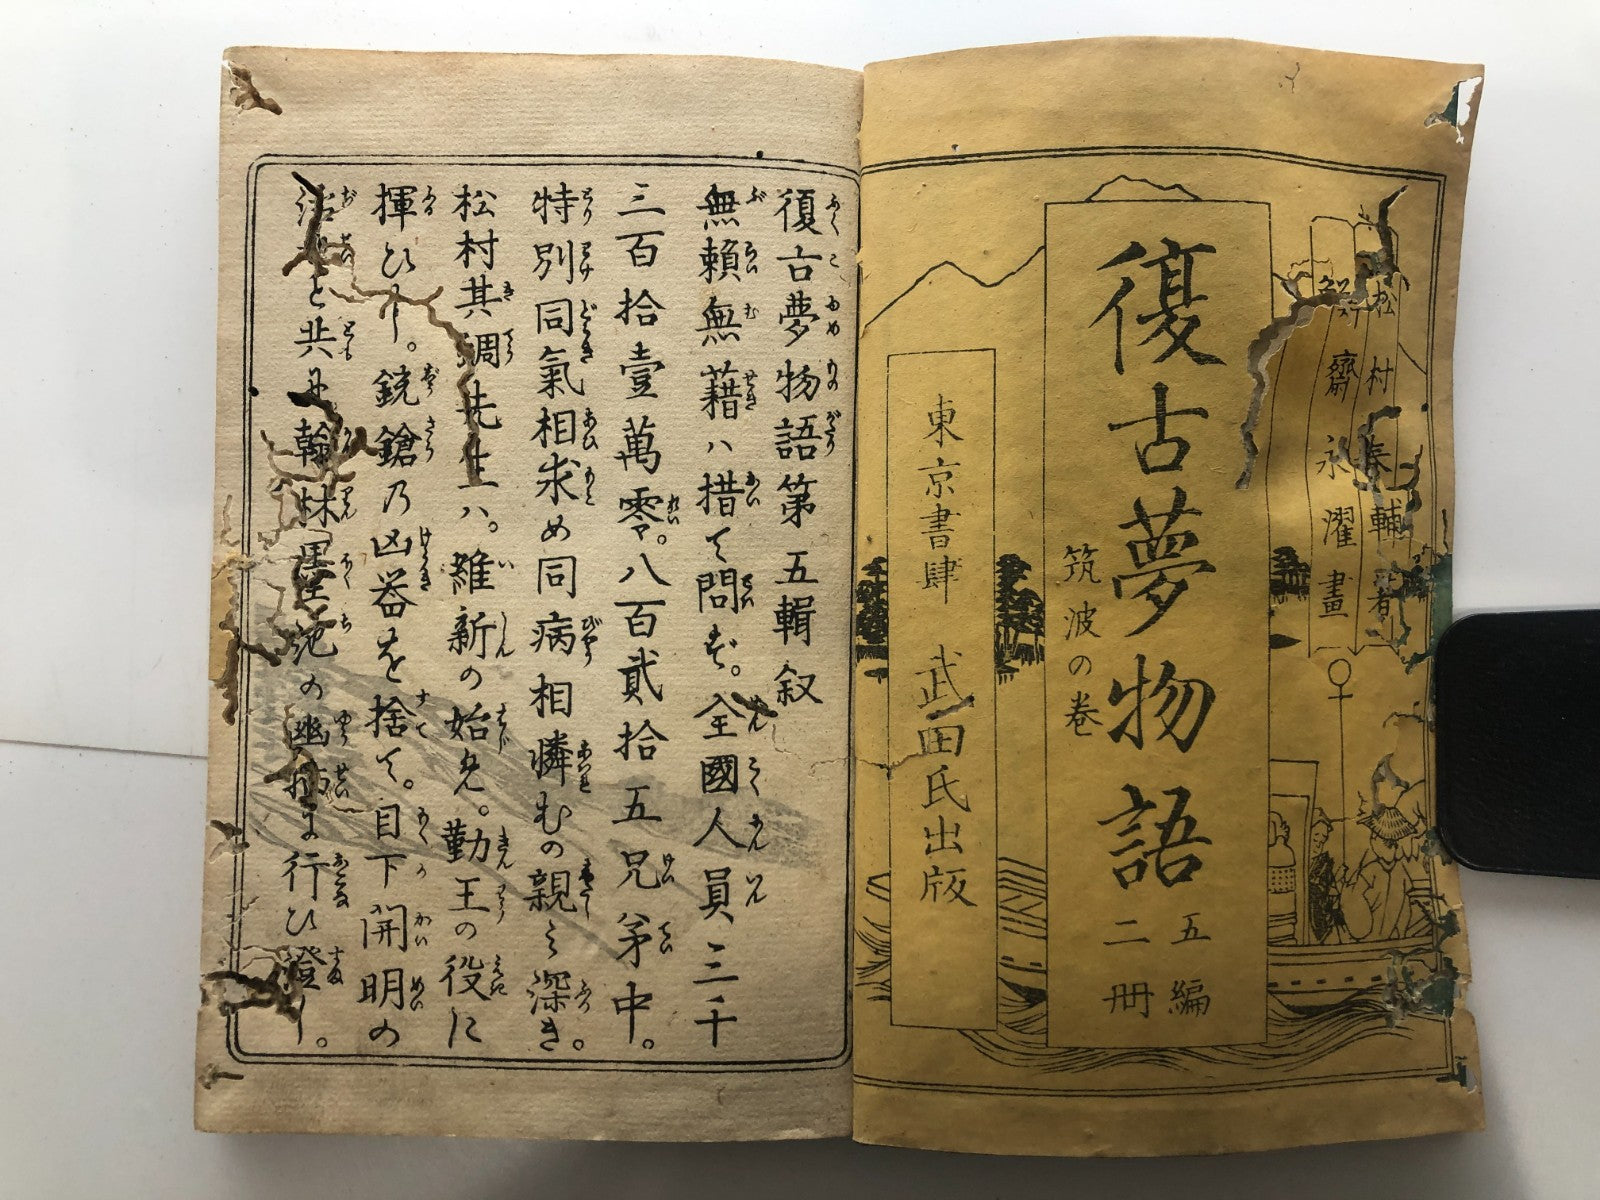 松村春輔著
鮮齋永濯畫
復古夢物語
筑波の巻
五編
二冊
東京書肆 武田氏出版
復古夢物語第五輯叙
無頼無藉ハ措て問ず。全國人員三千
三百拾壹萬零。八百貳拾五兄弟中。
特別同氣相求め同病相憐むの親み深き。
松村其調先生ハ。維新の始め。勤王の役に
揮ひし。銃鎗乃凶器を捨て。目下開明の
と共に翰林墨池の幽栖に行ひ澄し。